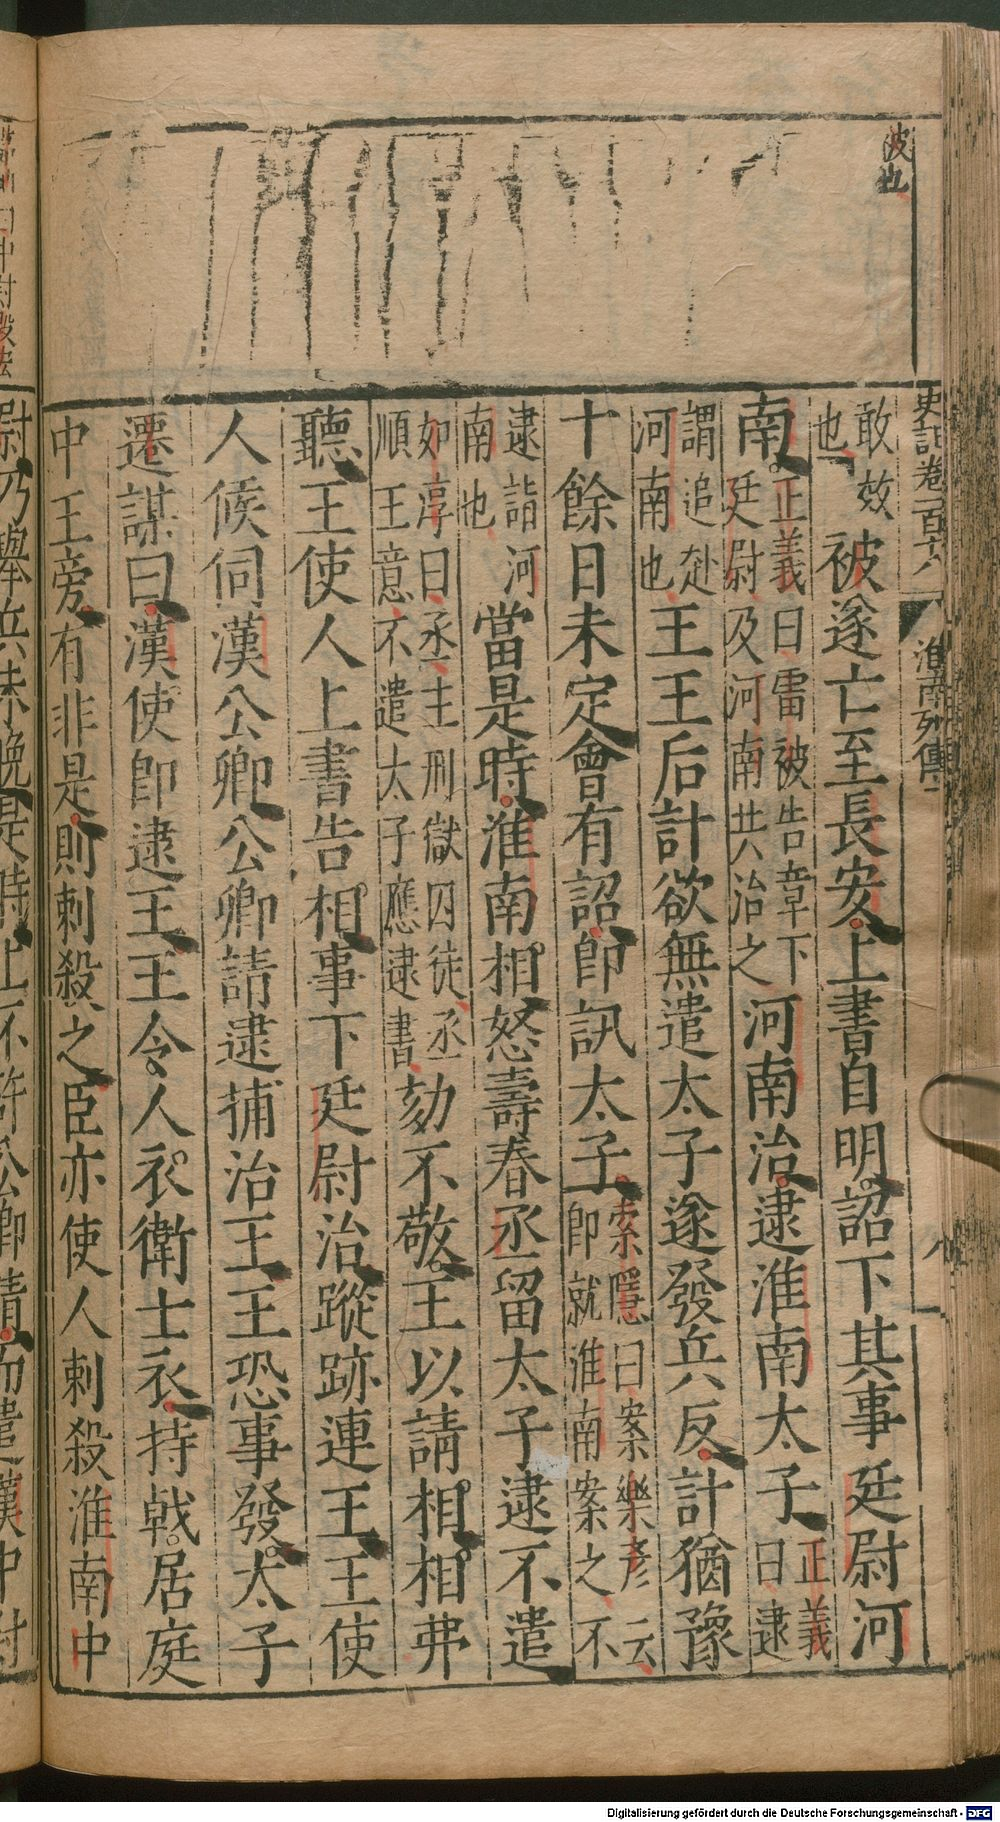 波也
史記卷一百十八 淮南列傳 八
敢效
也
被遂亡至長安上書自明詔下其事廷尉河
南
正義曰雷被告章下
廷尉及河南共治之
河南治逮淮南太子
正義
曰逮
謂追赴
河南也
王王后計欲無遣太子遂發兵反計猶豫
十餘日未定會有詔即訊太子
索隱曰案樂彥云
即就淮南案之不
逮詣河
南也
當是時淮南相怒壽春丞留太子逮不遣
如淳曰丞主刑獄囚徒丞
順王意不遣太子應逮書
劾不敬王以請相相弗
聽王使人上書告相事下廷尉治蹤跡連王王使
人候伺漢公卿公卿請逮捕治王王恐事發太子
遷謀曰漢使即逮王王令人衣衛士衣持戟居庭
中王旁有非是則刺殺之臣亦使人刺殺淮南中
中尉殷法
尉乃舉兵未晚是時上不許公卿請而遣漢中尉
Digitalisierung gefördert durch die Deutsche Forschungsgemeinschaft - DFG